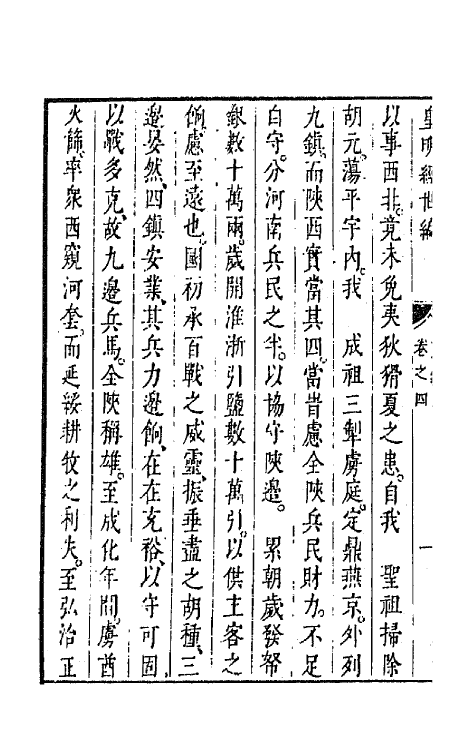 皇明經世編
卷之四
一
以事西北。竟未免夷狄猾夏之患。自我 聖祖掃除
胡元。蕩平宇內。我 成祖三犁虜庭。定鼎燕京。外列
九鎮。而陝西實當其四。當昔慮全陝兵民財力。不足
自守。分河南兵民之半。以協守陝邊。 累朝歲發帑
銀數十萬兩。歲開淮浙引鹽數十萬引。以供主客之
餉。慮至遠也。國初承百戰之威靈、振垂盡之胡種、三
邊晏然、四鎮安業、其兵力邊餉、在在充裕、以守可固
以戰多克、故九邊兵馬。全陝稱雄。至成化年間。虜酋
火篩、率衆西窺河套。而延綏耕牧之利失。至弘治正